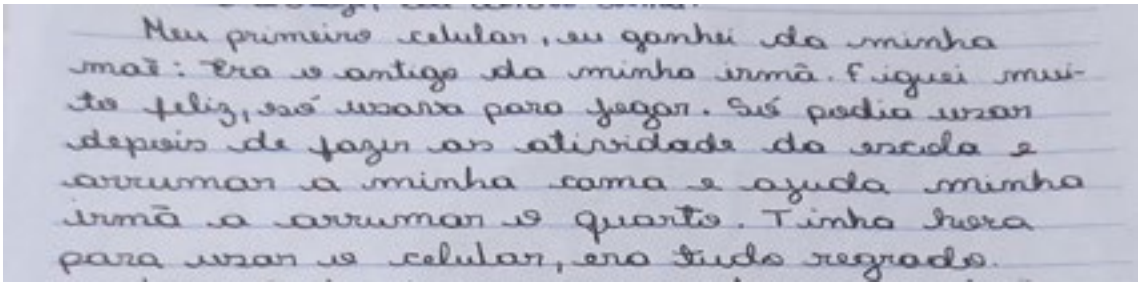 Meu primeiro celular, eu ganhei da minha
mãe: Era o antigo da minha irmã. Fiquei mui-
to feliz, só usava para jogar. Só podia usar
depois de fazer as atividade da escola e
arrumar a minha cama e ajuda minha
irmã a arrumar o quarto. Tinha hora
para usar o celular, era tudo regrado.